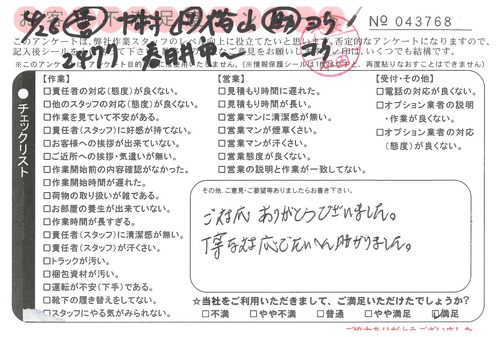 No 043768
このアンケートは、弊社作業スタッフのレベル向上に役立てたいと思います。否定的なアンケートになりますので、
【作業】
□責任者の対応(態度)が良くない。
□他のスタッフの対応(態度)が良くない。
□作業を見ていて不安がある。
□責任者(スタッフ)に好感が持てない。
□お客様への挨拶が出来ていない。
□ご近所への挨拶・気遣いが無い。
□作業開始前の内容確認がなかった。
□作業開始時間が遅れた。
□荷物の取り扱いが雑である。
□お部屋の養生が出来ていない。
□作業時間が長すぎる。
□責任者(スタッフ)に清潔感が無い。
□責任者(スタッフ)が汗くさい。
□トラックが汚い。
□梱包資材が汚い。
□運転が不安(下手)である。
□靴下の履き替えをしてない。
□スタッフにやる気がみられない。
【営業】
□見積もり時間に遅れた。
□見積もり時間が長い。
□営業マンに清潔感が無い。
□営業マンが煙草くさい。
□営業マンが汗くさい。
□営業態度が良くない。
□営業の説明と作業が一致してない。
【受付・その他】
□電話の対応が良くない。
□オプション業者の説明
・作業が良くない。
□オプション業者の対応
(態度)が良くない。
チェックリスト
その他、ご意見・ご要望等ありましたらお書き下さい。
ご対応ありがとうございました。
丁寧な対応でたいへん助かりました。
☆当社をご利用いただきまして、ご満足いただけたでしょうか?
□不満 □やや不満 □普通 □やや満足 □満足
ご協力ありがとうございました